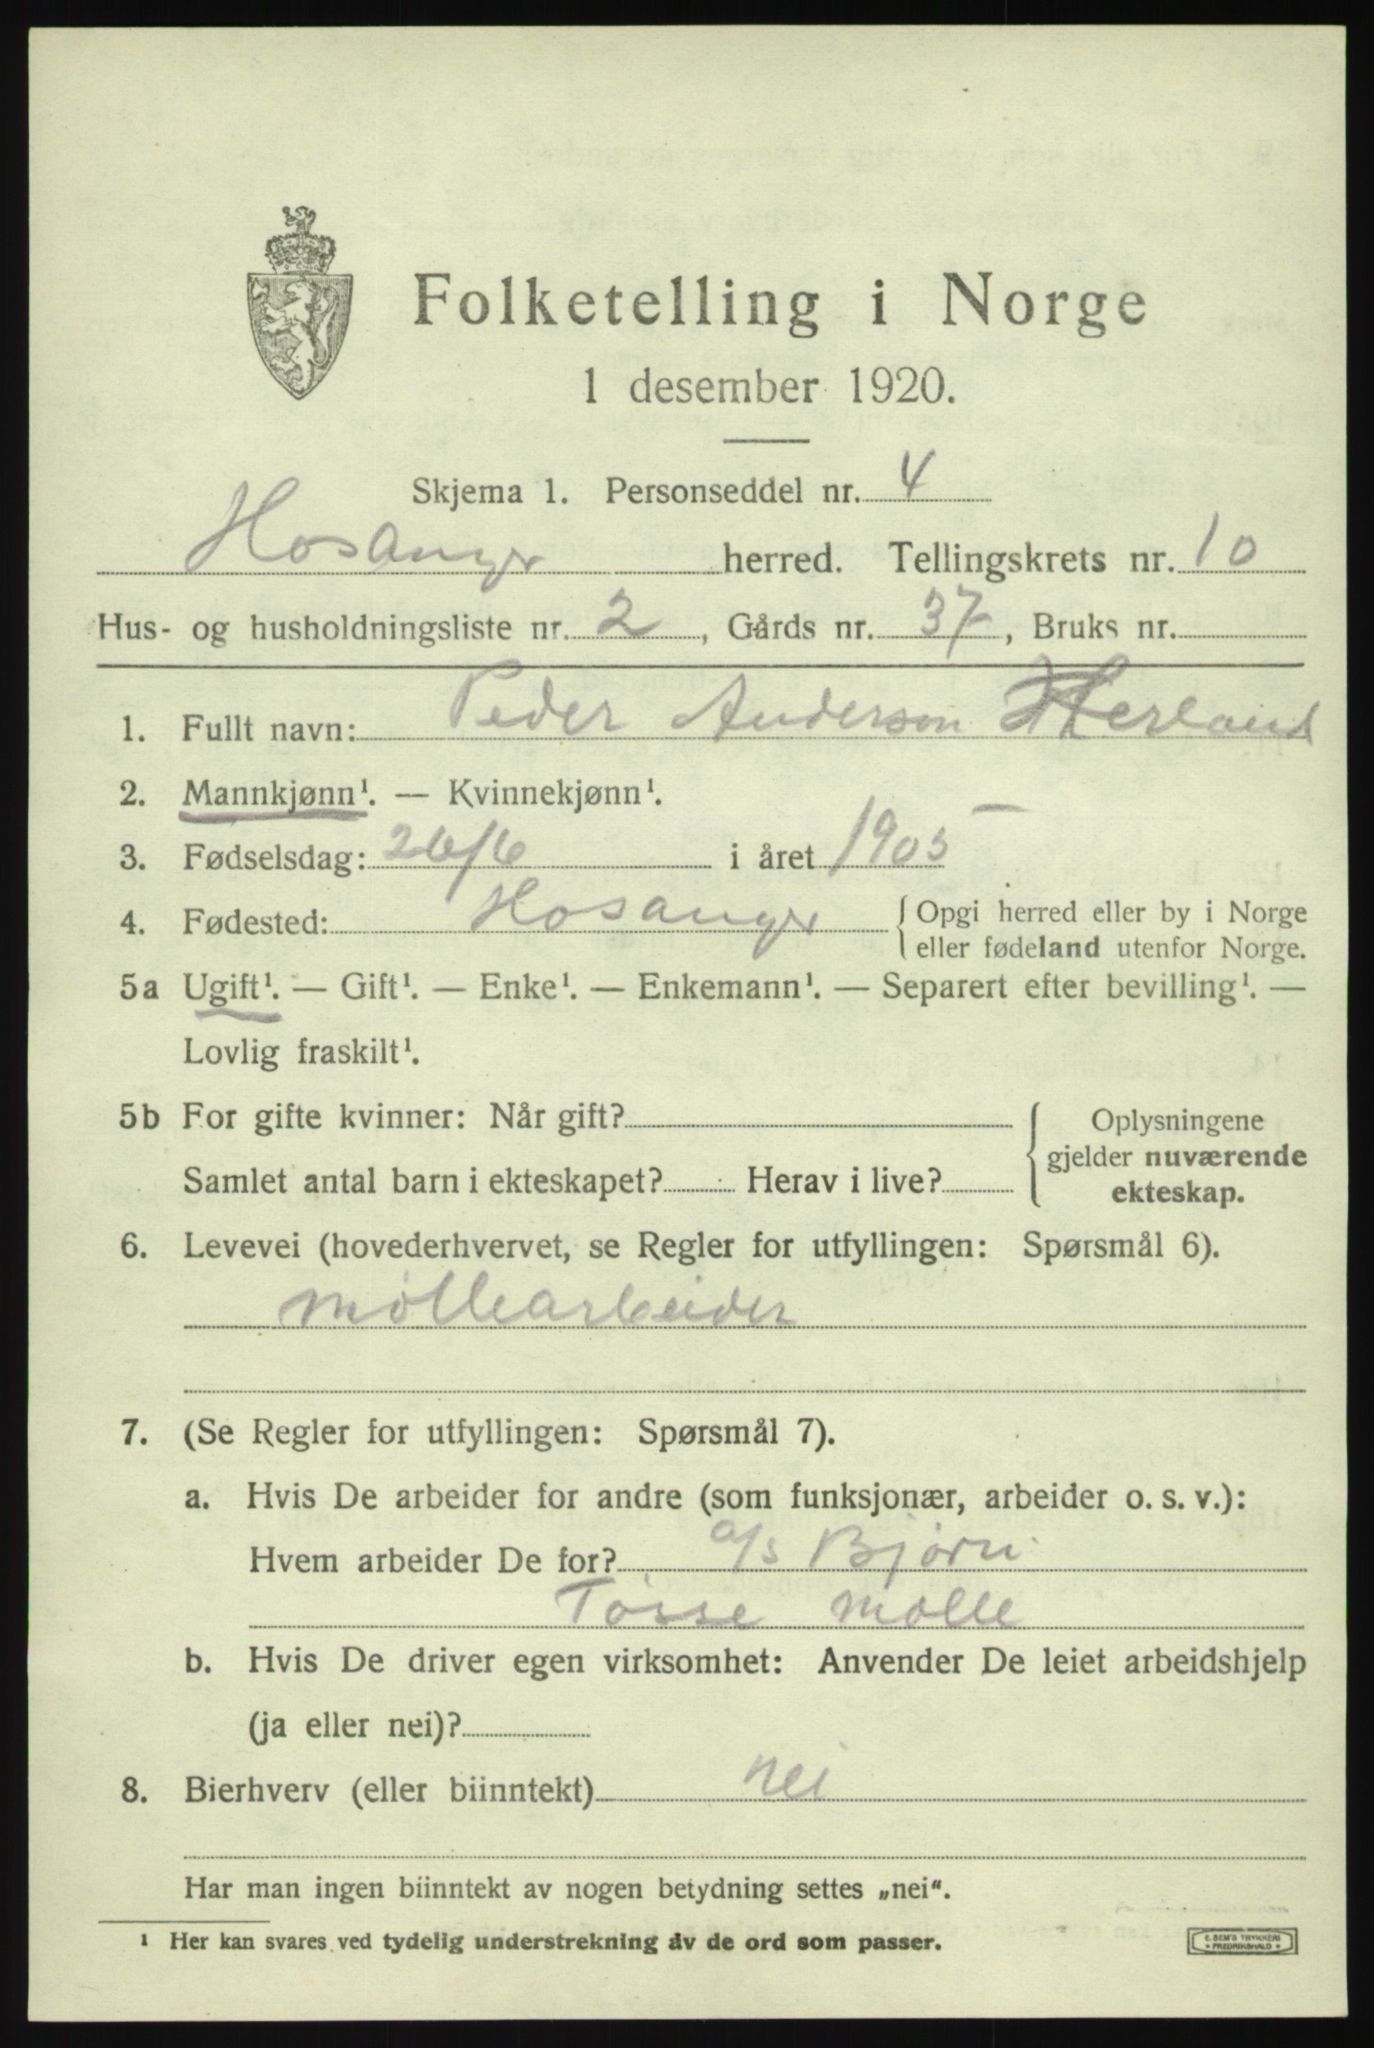 Folketelling i Norge
1 desember 1920.
Skjema 1. Personseddel nr. 4
Hosanger herred. Tellingskrets nr. 10
Hus- og husholdningsliste nr. 2, Gårds nr. 37, Bruks nr.
1. Fullt navn: Peder Anderson Herland
2. Mannkjønn¹. — Kvinnekjønn¹.
3. Fødselsdag: 26/6 i året 1905
4. Fødested: Hosanger { Opgi herred eller by i Norge
eller fødeland utenfor Norge.
5a Ugift¹. — Gift¹. — Enke¹. — Enkemann¹. — Separert efter bevilling¹. —
Lovlig fraskilt¹.
5b For gifte kvinner: Når gift? { Oplysningene
gjelder nuværende
Samlet antal barn i ekteskapet? Herav i live? ekteskap.
6. Levevei (hovederhvervet, se Regler for utfyllingen: Spørsmål 6).
møllearbeider
7. (Se Regler for utfyllingen: Spørsmål 7).
a. Hvis De arbeider for andre (som funksjonær, arbeider o. s. v.):
Hvem arbeider De for? a/s Bjørn
Tøsse mølle
b. Hvis De driver egen virksomhet: Anvender De leiet arbeidshjelp
(ja eller nei)?
8. Bierhverv (eller biinntekt) nei
Har man ingen biinntekt av nogen betydning settes „nei“.
¹ Her kan svares ved tydelig understrekning av de ord som passer.
E. SEM'S TRYKKERI
FREDRIKSHALD